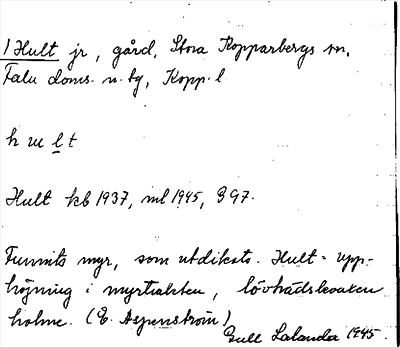 1 Hult jr, gård, Stora Kopparbergs sn,
Falu doms. n. tg, Kopp. l.
h u l t
Hult kb 1937, ml 1945, G 97.
Funnits myr, som utdikats. Hult = upp-
höjning i myrtrakten, lövträdsbevuxen
holme. (E. Aspenström)
Gull Lalander 1945.